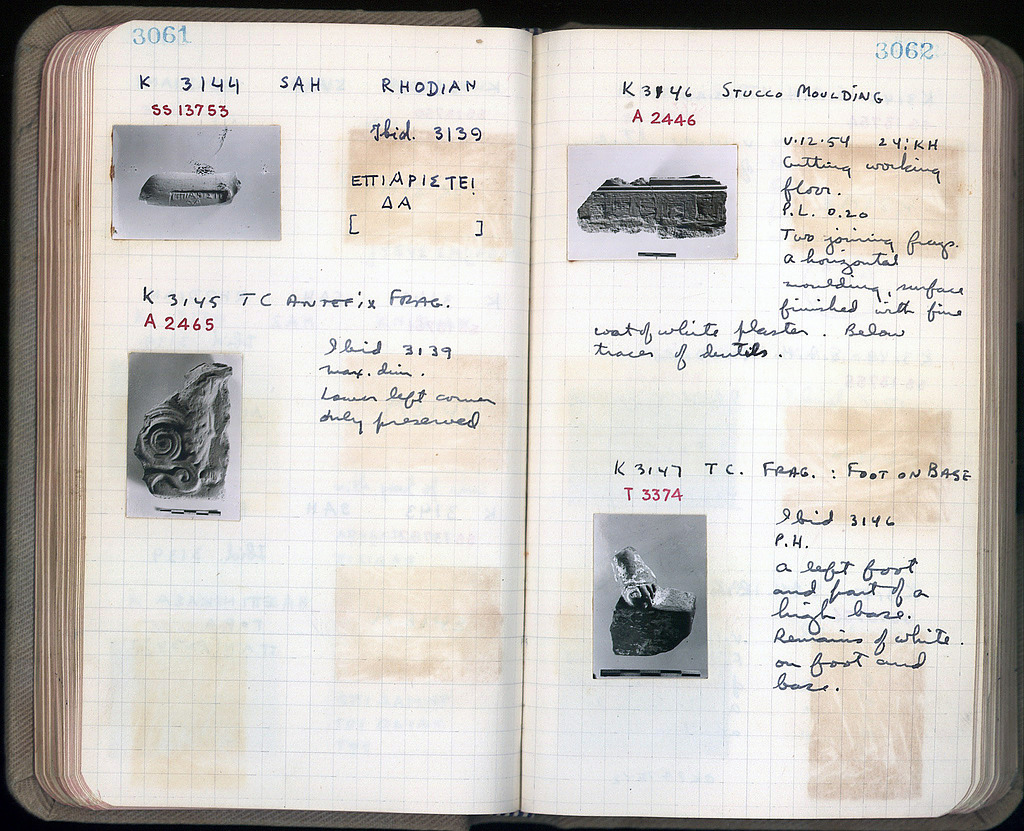 3061
K 3144 SAH RHODIAN
SS 13753
Ibid. 3139
ΕΠΙΑΡΙΣΤΕΙ
ΔΑ
[ ]
K 3145 TC ANTEFIX FRAG.
A 2465
Ibid 3139
max. dim.
Lower left corner
only preserved
3062
K 3146 STUCCO MOULDING
A 2446
V·12·54 24:KH
Cutting working
floor.
P.L. 0.20
Two joining frags.
a horizontal
moulding, surface
finished with fine
coat of white plaster. Below
traces of dentils.
K 3147 T C. FRAG. : FOOT ON BASE
T 3374
Ibid 3146
P.H.
a left foot
and part of a
high base.
Remains of white
on foot and
base.